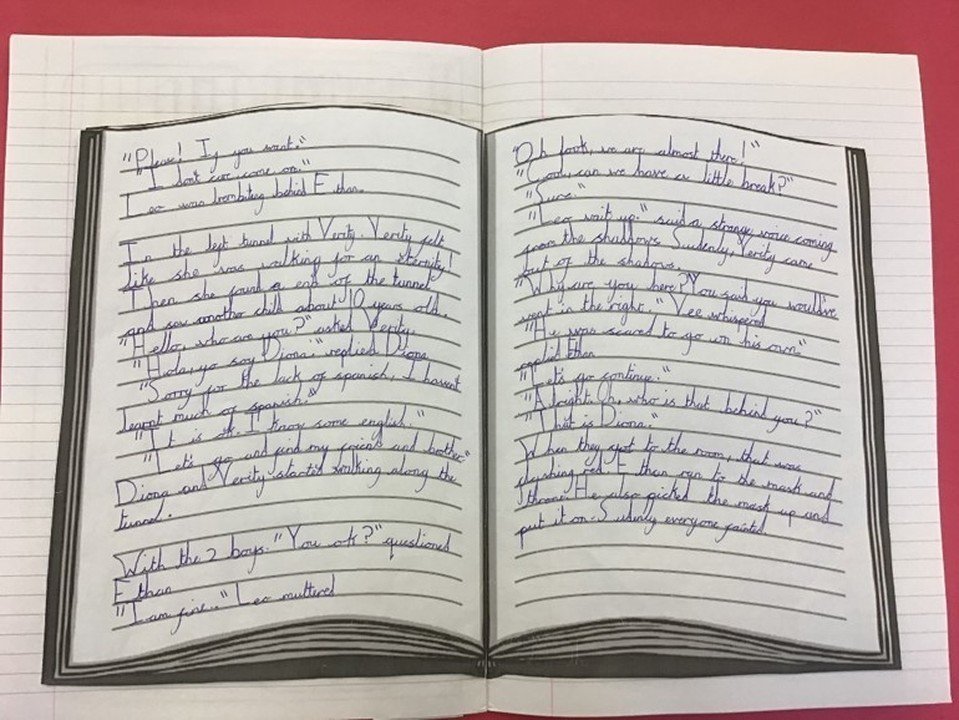 "Please! If you want."
"I dont care come on."
Leo was trembiling behind Ethan.
In the left tunnel with Verity. Verity felt
like she was walking for an eternity!
Then she found a end of the tunnel
and saw another child about 10 years old.
"Hello, who are you?" asked Verity.
"Hola, yo soy Diona." replied Diona
"Sorry for the lack of spanish, I havent
learnt much of spanish."
"It is ok. I know some english."
"Let's go and find my friend and bother."
Diona and Verity started walking along the
tunnel.
With the 2 boys. "You ok?" questioned
Ethan
"I am fine.." Leo muttered
"Oh look, we are almost there!"
"Cool, can we have a little break?"
"Sure."
"Leo wait up." said a strange voice coming
from the shadows Sudenly, Verity came
out of the shadows.
"Why are you here? You said you would've
went in the right." Vee whispered
"He was scared to go on his own"
replied Ethan
"Let's go continue."
"Alright. Oh, who is that behind you?"
"That is Diona."
When they got to the room, that was
flashing red. Ethan ran to the mask and
throne. He also picked the mask up and
put it on. Sudenly everyone fainted.